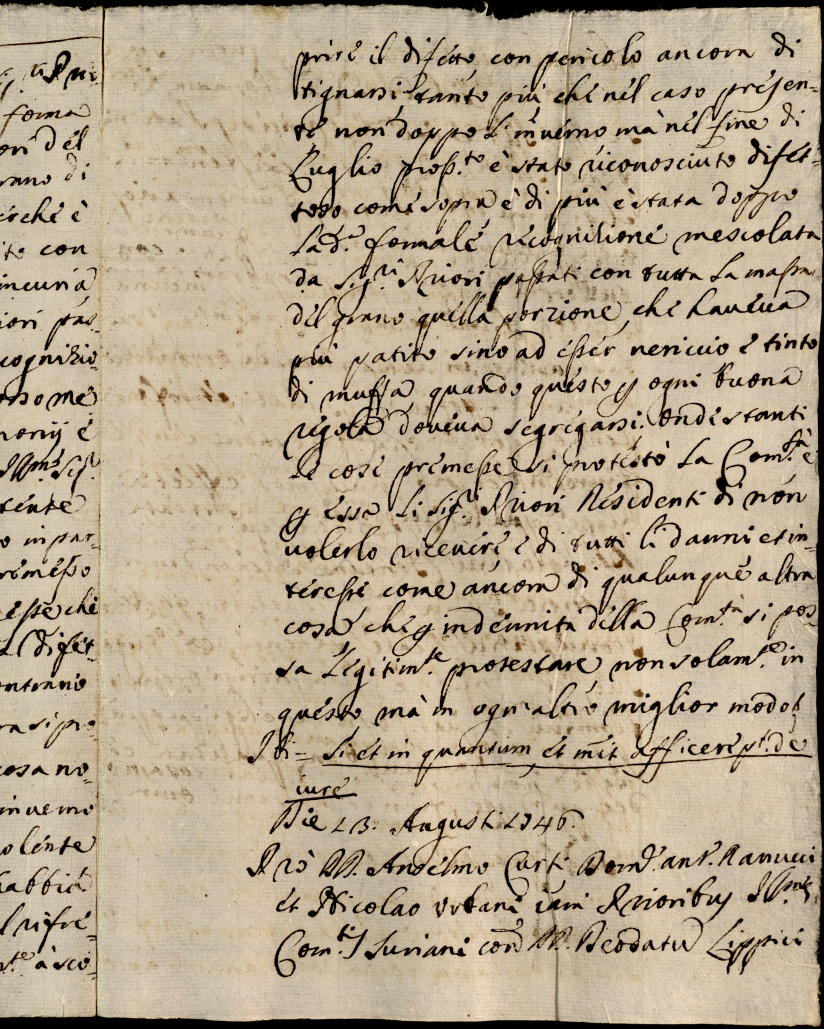 ti Rni
forma
ori del
rano di
erche è
con
incuria
iori pas-
cognizio-
Ill.mo Sig.
tente
o in par-
remesso
esse che
difet-
ontrario
ra si pro-
cosa no-
inverno
olente
habbia
l rifre-
à sco-
prire il difetto con pericolo ancora di
tignarsi, tanto più che nel caso presen-
te non doppo l'inverno mà nel fine di
Luglio pross.to è stato riconosciuto difet-
toso come sopra è di più è stata doppo
la d.a formale recognizione mescolata
da Sig.ri Priori passati con tutta la massa
del grano quella porzione, che haveva
più patito sino ad esser nericcio e tinto
di muffa quando questo p ogni buona
regola doveva segregarsi. Onde stanti
le cose premesse si protestò la Com.tà e
p essa li Sig.ri Priori Residenti di non
volerlo ricevere e di tutti li danni et in-
teresse come ancora di qualunque altra
cosa che p indennita della Com.tà si pos-
sa legitim.te protestare non solam.te in
questo mà in ogn'altro miglior modo
Ibi = Si et in quantum, et
iure
Die 23. Augusti 1746.
Pro DD. Anselmo Curti Dom.co ant.o Ranucci
et Nicolao Urbani iam Prioribus Ill.mæ
Com.tis Suriani con D. Deodatu Lippici